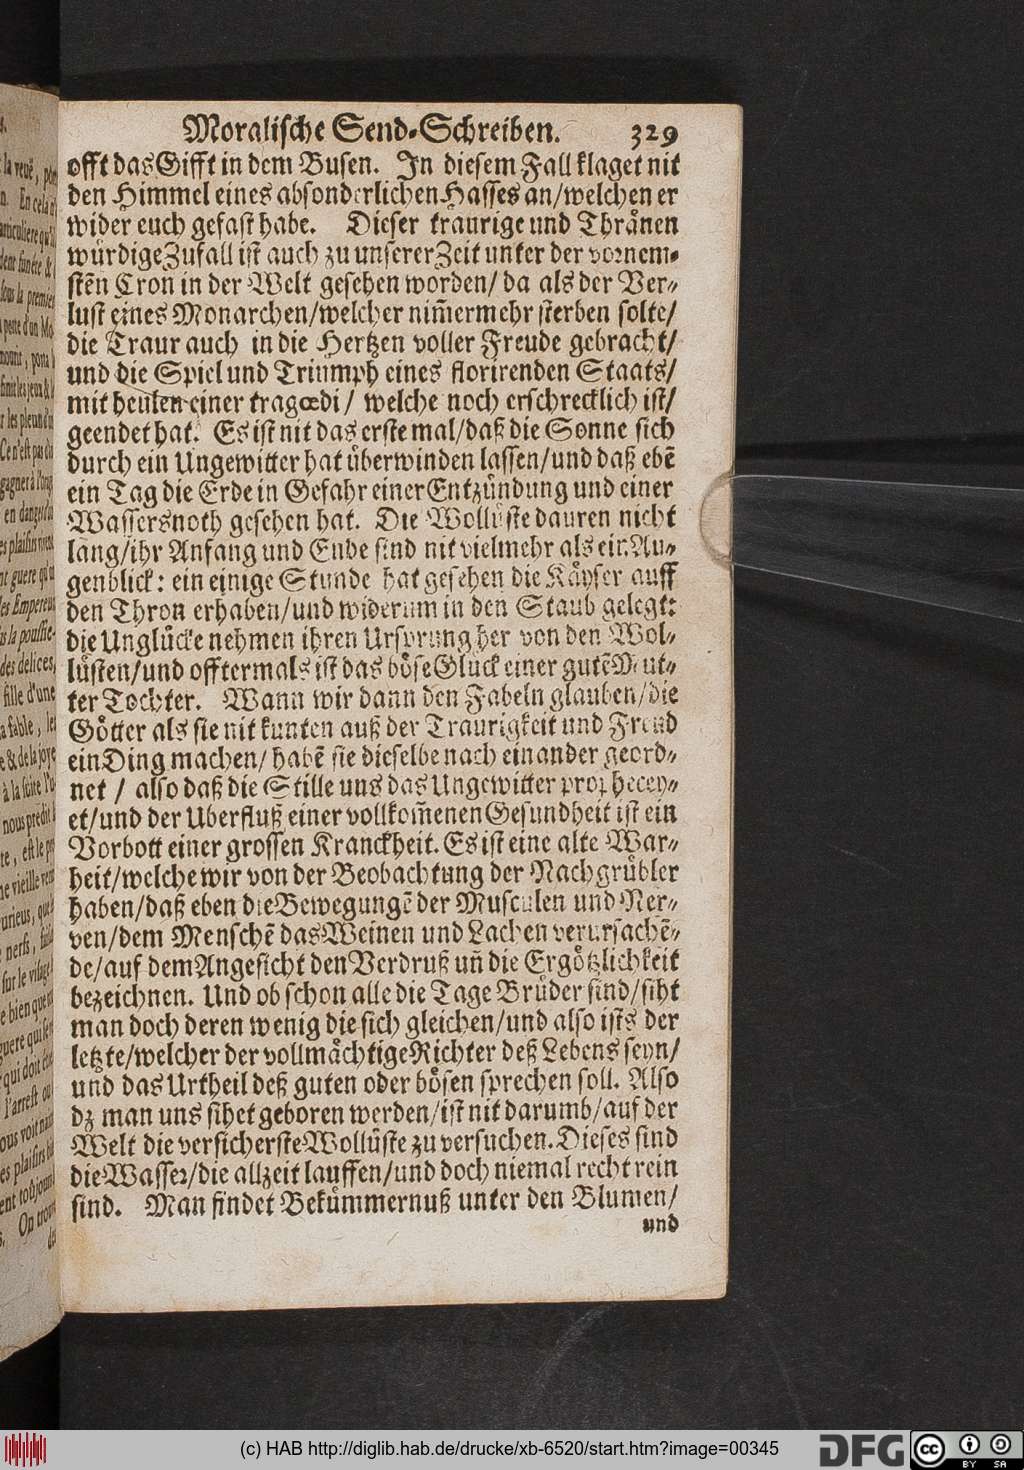 Moralische Send-Schreiben. 329
offt das Gifft in dem Busen. In diesem Fall klaget nit
den Himmel eines absonderlichen Hasses an/welchen er
wider euch gefast habe. Dieser traurige und Thränen
würdige Zufall ist auch zu unserer Zeit unter der vornem-
stẽn Cron in der Welt gesehen worden/ da als der Ver-
lust eines Monarchen/welcher nim̃ermehr sterben solte/
die Traur auch in die Hertzen voller Freude gebracht/
und die Spiel und Triumph eines florirenden Staats/
mit heulen einer tragœdi/ welche noch erschrecklich ist/
geendet hat. Es ist nit das erste mal/daß die Sonne sich
durch ein Ungewitter hat überwinden lassen/und daß ebẽ
ein Tag die Erde in Gefahr einer Entzündung und einer
Wassersnoth gesehen hat. Die Wollüste dauren nicht
lang/ihr Anfang und Ende sind nit vielmehr als ein Au-
genblick: ein einige Stunde hat gesehen die Käyser auff
den Thron erhaben/und widerum in den Staub gelegt:
die Unglücke nehmen ihren Ursprung her von den Wol-
lüsten/und offtermals ist das böse Glück einer gutẽ Mut-
ter Tochter. Wann wir dann den Fabeln glauben/die
Götter als sie nit kunten auß der Traurigkeit und Freud
ein Ding machen/ habẽ sie dieselbe nach einander geord-
net / also daß die Stille uns das Ungewitter prophecey-
et/und der Uberfluß einer vollkom̃enen Gesundheit ist ein
Vorbott einer grossen Kranckheit. Es ist eine alte War-
heit/welche wir von der Beobachtung der Nachgrübler
haben/daß eben die Bewegungẽ der Musculen und Ner-
ven/dem Menschẽ das Weinen und Lachen verursachẽ-
de/auf dem Angesicht den Verdruß uñ die Ergötzlichkeit
bezeichnen. Und ob schon alle die Tage Brüder sind/siht
man doch deren wenig die sich gleichen/und also ists der
letzte/welcher der vollmächtige Richter deß Lebens seyn/
und das Urtheil deß guten oder bösen sprechen soll. Also
dz man uns sihet geboren werden/ist nit darumb/auf der
Welt die versicherste Wollüste zu versuchen. Dieses sind
die Wasser/die allzeit lauffen/und doch niemal recht rein
sind. Man findet Bekümmernuß unter den Blumen/
und
(c) HAB http://diglib.hab.de/drucke/xb-6520/start.htm?image=00345
DFG
cc BY SA